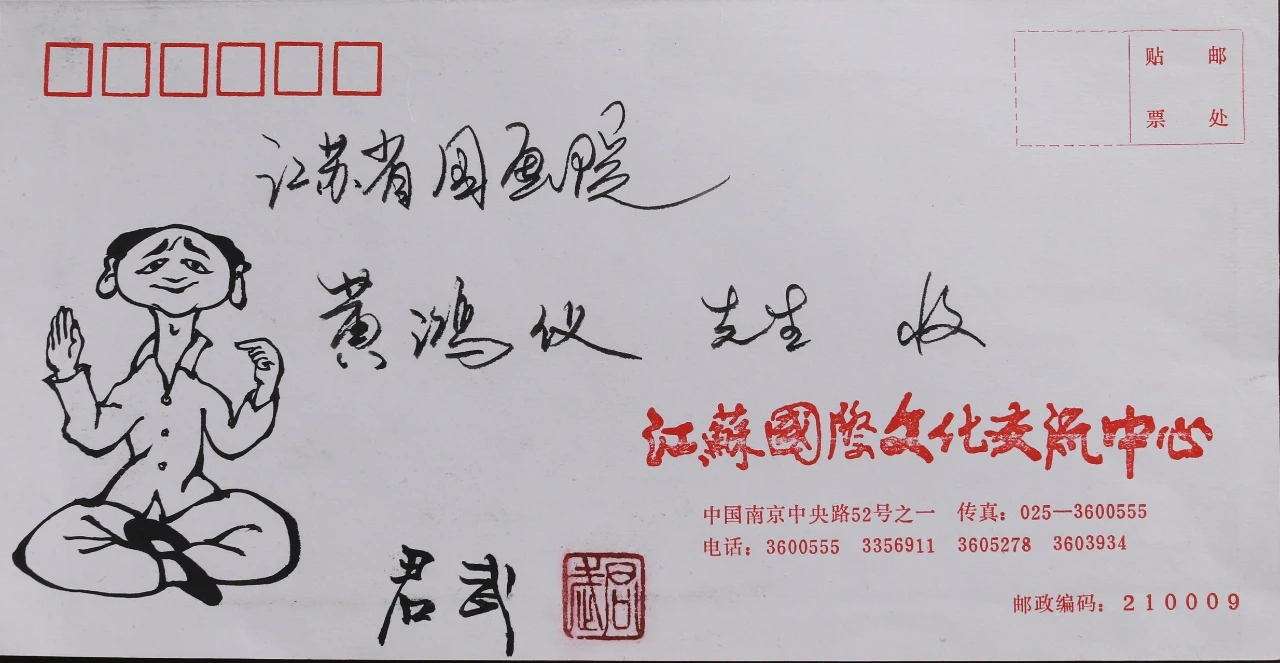 贴 邮
票 处
江苏省国画院
黄鸿仪 先生 收
江蘇國際文化交流中心
中国南京中央路52号之一 传真：025—3600555
电话：3600555 3356911 3605278 3603934
邮政编码：210009
君武
君武